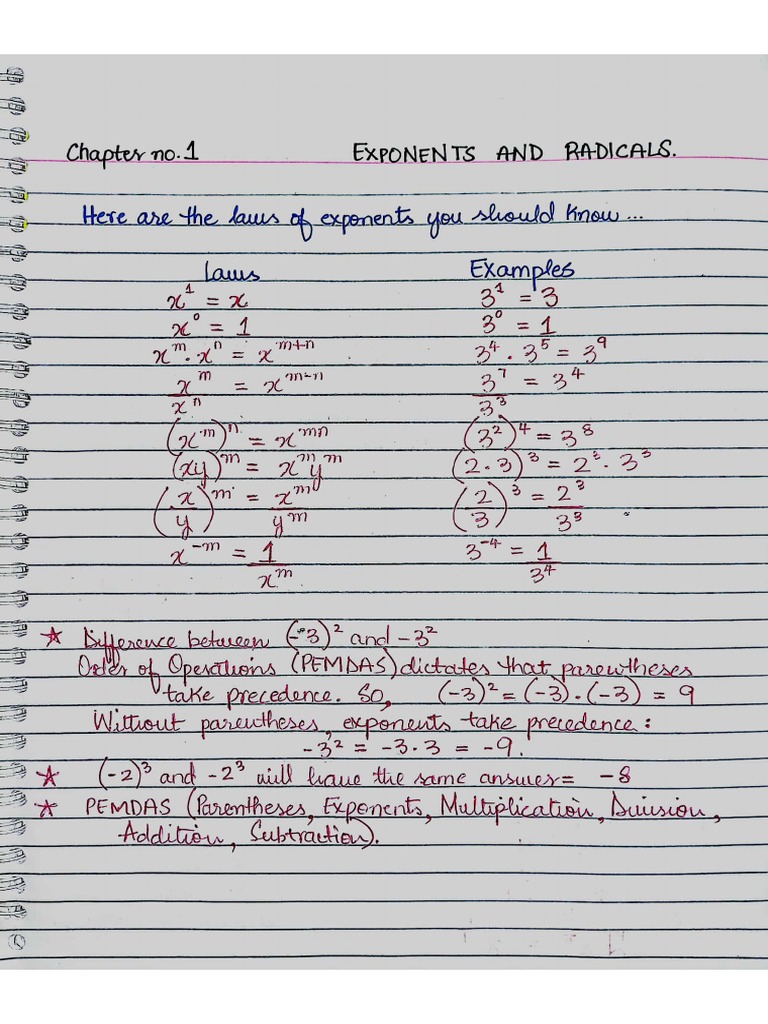 Chapter no. 1 EXPONENTS AND RADICALS.
Here are the laws of exponents you should know ...
Laws Examples
x¹ = x 3¹ = 3
x⁰ = 1 3⁰ = 1
xᵐ · xⁿ = xᵐ⁺ⁿ 3⁴ · 3⁵ = 3⁹
xᵐ/xⁿ = xᵐ⁻ⁿ 3⁷/3³ = 3⁴
(xᵐ)ⁿ = xᵐⁿ (3²)⁴ = 3⁸
(xy)ᵐ = xᵐyᵐ (2·3)³ = 2³ · 3³
(x/y)ᵐ = xᵐ/yᵐ (2/3)³ = 2³/3³
x⁻ᵐ = 1/xᵐ 3⁻⁴ = 1/3⁴
☆ Difference between (-3)² and -3²
Order of Operations (PEMDAS) dictates that parentheses
take precedence. So, (-3)² = (-3)·(-3) = 9
Without parentheses, exponents take precedence :
-3² = -3·3 = -9.
☆ (-2)³ and -2³ will have the same answer = -8
☆ PEMDAS (Parentheses, Exponents, Multiplication, Division,
Addition, Subtraction).